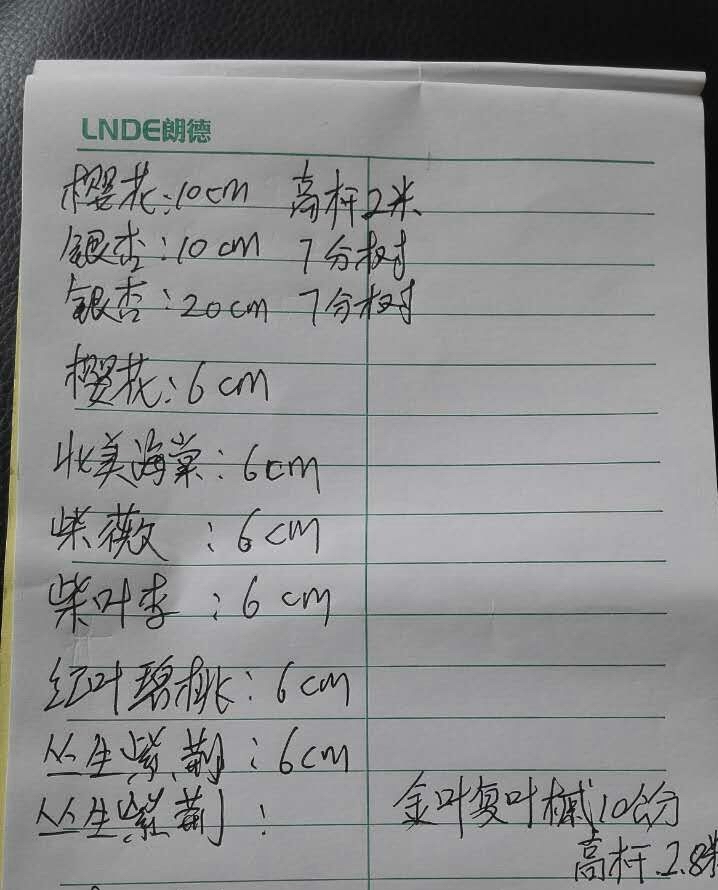 LNDE朗德
樱花:10cm 高杆2米
银杏:10cm 7分树
银杏:20cm 7分树
樱花:6cm
北美海棠:6cm
柴薇:6cm
柴叶李:6cm
红叶碧桃:6cm
丛生紫荆:6cm
丛生紫荆:
金叶复叶槭10公分
高杆.2.8米